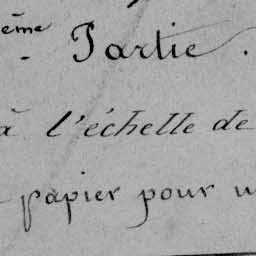 ème Partie.
à l'échelle de
papier pour